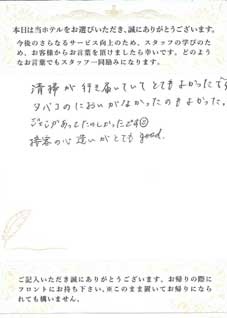 本日は当ホテルをお選びいただき、誠にありがとうございます。
今後のさらなるサービス向上のため、スタッフの学びのた
め、お客様からお言葉を頂けましたら幸いです。どのよう
なお言葉でもスタッフ一同励みになります。
清掃が行き届いていてとてもよかったです
タバコのにおいがなかったのもよかった。
あってたのしかったです
接客の心遣いがとても good.
ご記入いただき誠にありがとうございます。お帰りの際に
フロントにお持ち下さい。※このまま置いてお帰りになら
れても構いません。